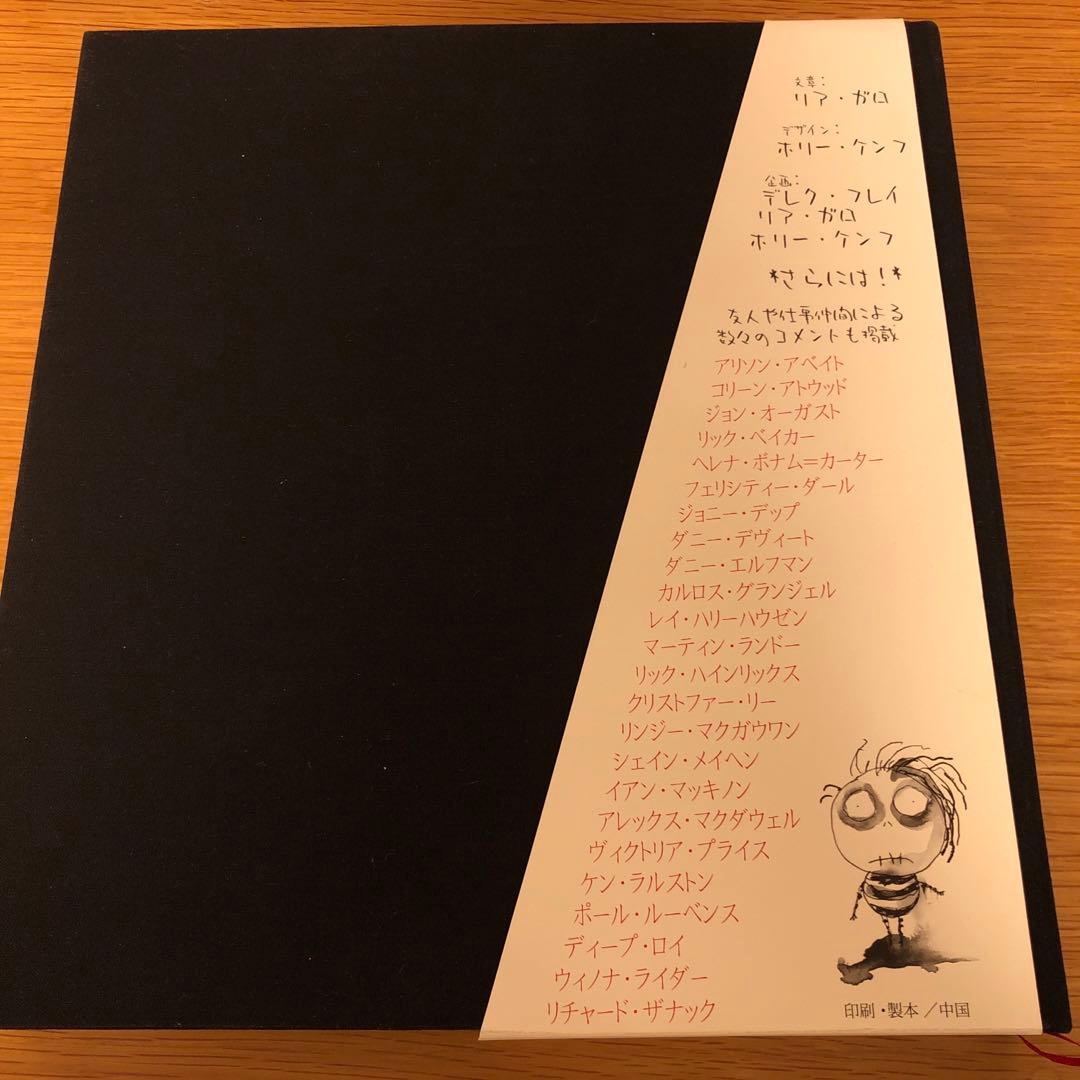 文章:
リア・ガロ
デザイン:
ホリー・ケンフ
企画:
デレク・フレイ
リア・ガロ
ホリー・ケンフ
*さらには!*
友人や仕事仲間による
数々のコメントも掲載
アリソン・アベイト
コリーン・アトウッド
ジョン・オーガスト
リック・ベイカー
ヘレナ・ボナム=カーター
フェリシティー・ダール
ジョニー・デップ
ダニー・デヴィート
ダニー・エルフマン
カルロス・グランジェル
レイ・ハリーハウゼン
マーティン・ランドー
リック・ハインリックス
クリストファー・リー
リンジー・マクガウワン
シェイン・メイヘン
イアン・マッキノン
アレックス・マクダウェル
ヴィクトリア・プライス
ケン・ラルストン
ポール・ルーベンス
ディープ・ロイ
ウィノナ・ライダー
リチャード・ザナック
印刷・製本/中国